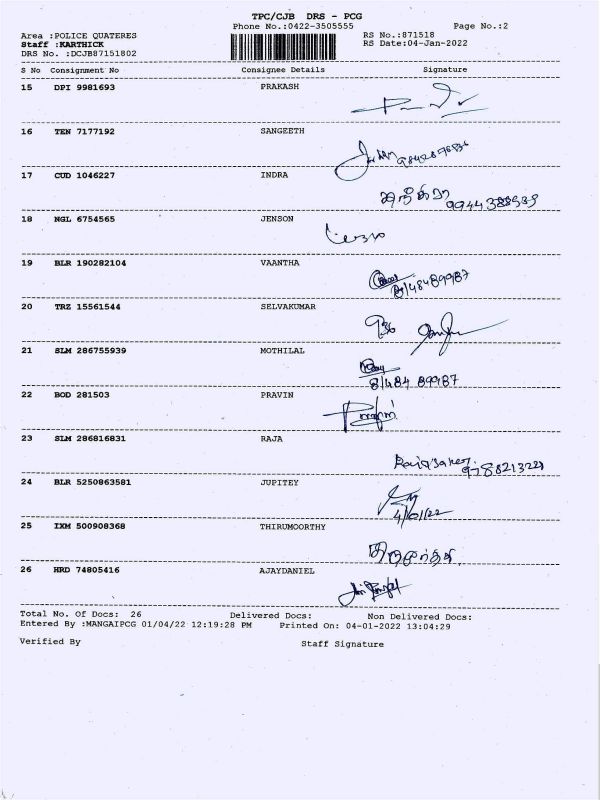 TPC/CJB DRS - PCG
Phone No.:0422-3505555 Page No.:2
Area :POLICE QUATERES RS No.:871518
Staff :KARTHICK RS Date:04-Jan-2022
DRS No. :DCJB87151802
S No Consignment No Consignee Details Signature
15 DPI 9981693 PRAKASH
16 TEN 7177192 SANGEETH
17 CUD 1046227 INDRA
இந்திரா
18 NGL 6754565 JENSON
19 BLR 190282104 VAANTHA
8148489987
20 TRZ 15561544 SELVAKUMAR
936
21 SLM 286755939 MOTHILAL
81484 89987
22 BOD 281503 PRAVIN
23 SLM 286816831 RAJA
24 BLR 5250863581 JUPITEY
4/01/22
25 IXM 500908368 THIRUMOORTHY
திருமூர்த்தி
26 HRD 74805416 AJAYDANIEL
Total No. Of Docs: 26 Delivered Docs: Non Delivered Docs:
Entered By :MANGAIPCG 01/04/22 12:19:28 PM Printed On: 04-01-2022 13:04:29
Verified By Staff Signature